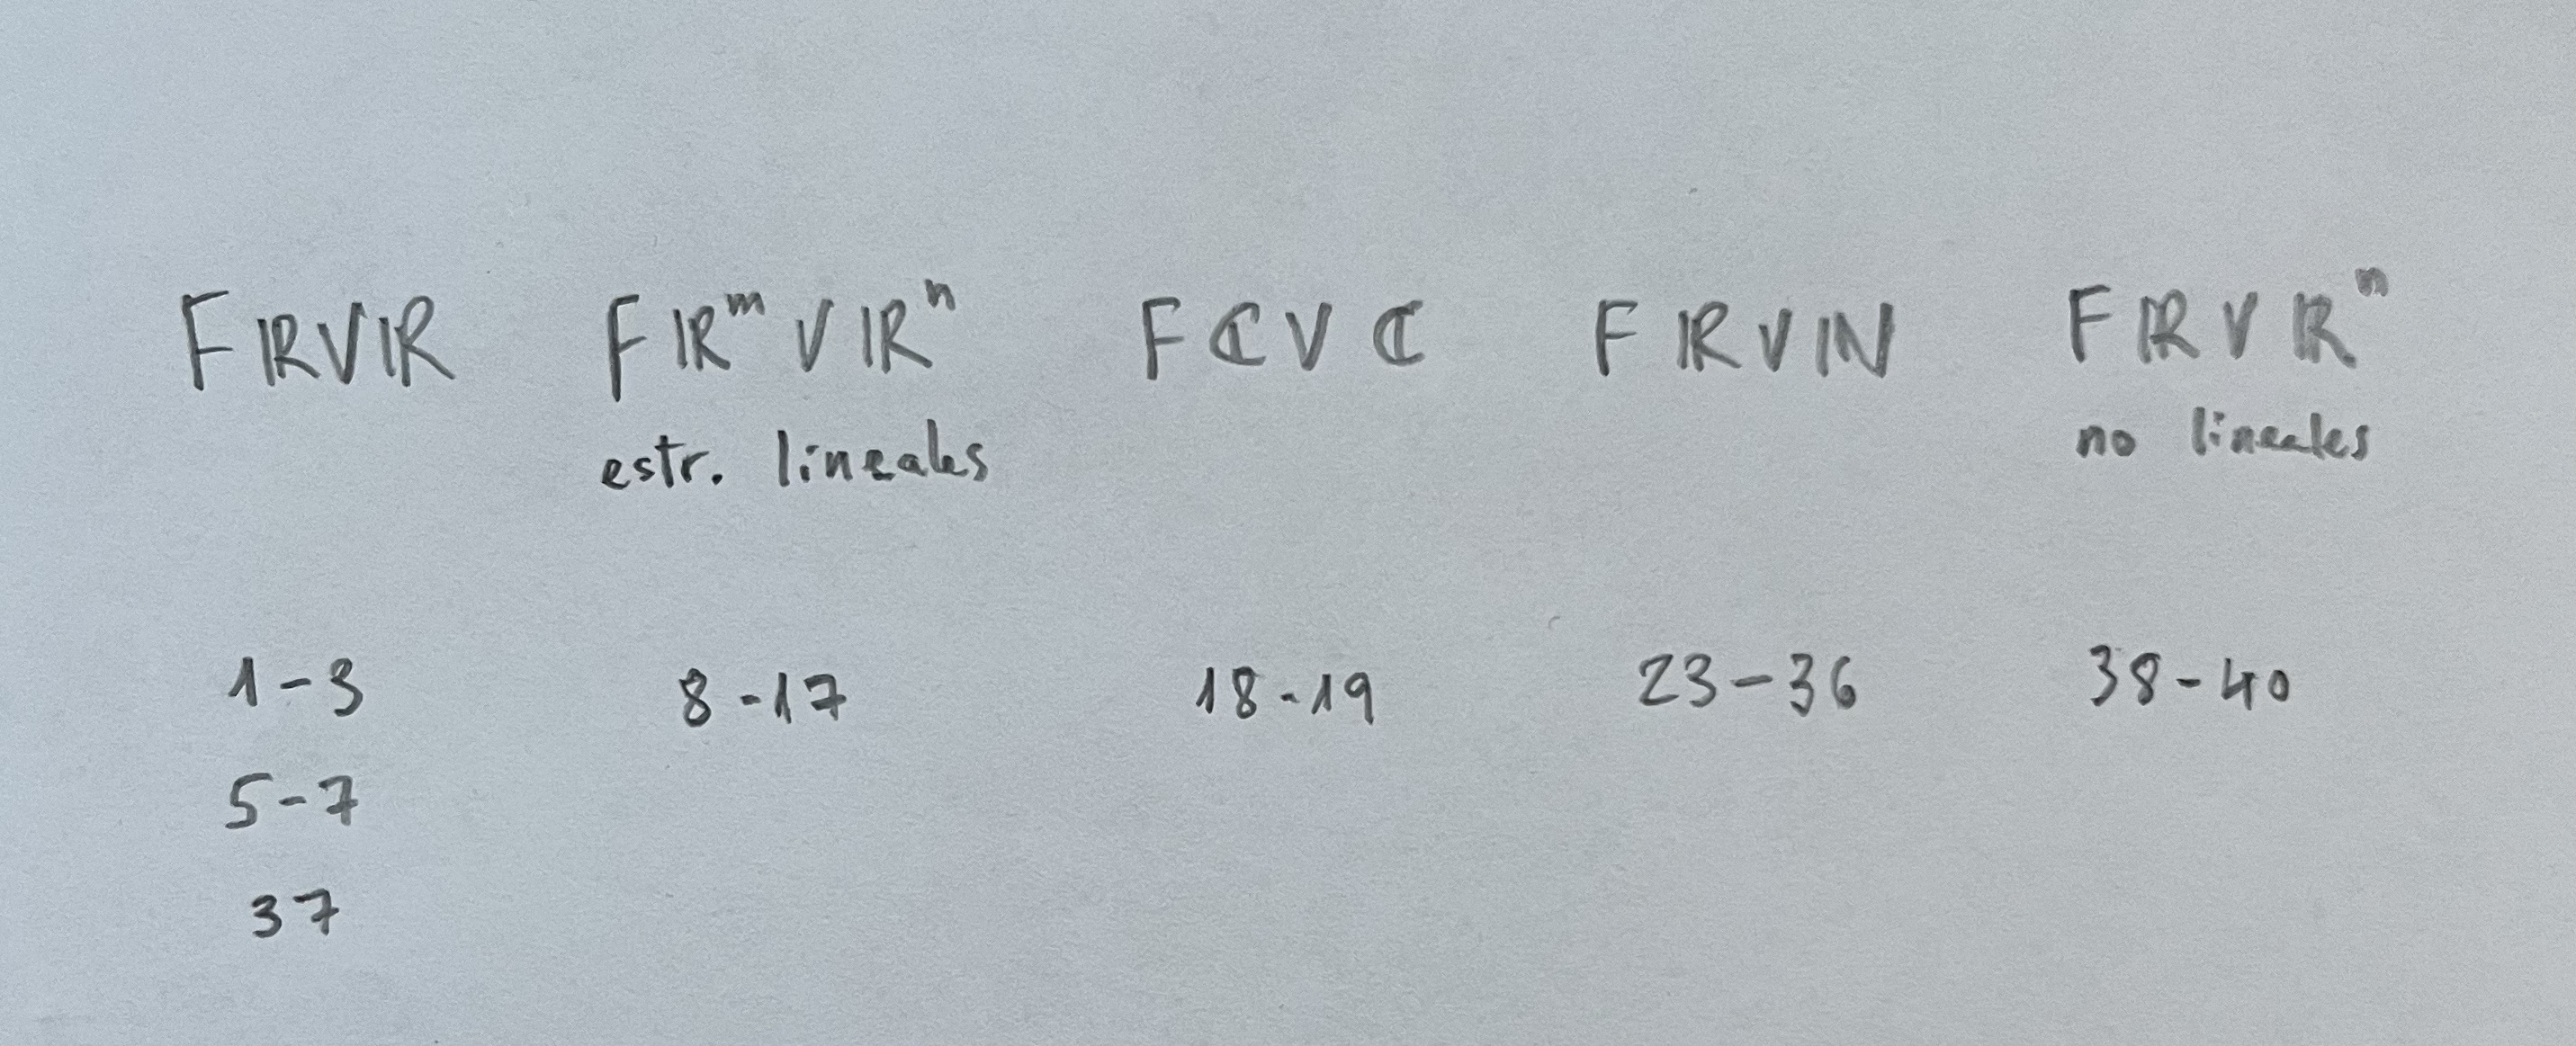 FℝVℝ Fℝᵐ V ℝⁿ FℂVℂ FℝVℕ FℝVℝⁿ
estr. lineales no lineales
1-3 8-17 18-19 23-36 38-40
5-7
37